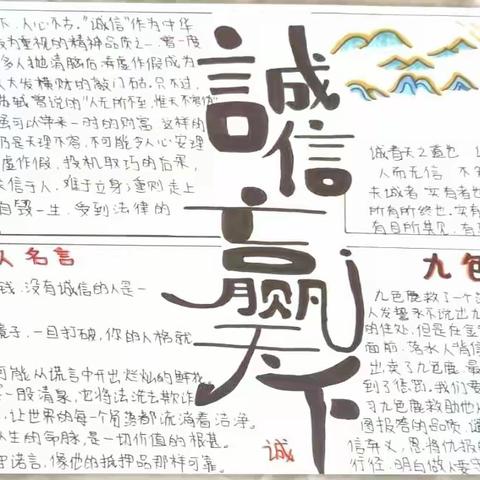 下,人心不古。"诚信"作为中华
为重视的精神品质之一,曾一度
多人抛清脑后,有虚作假成为
人大发横财的敲门砖。只不过,
虽可以带来一时的财富,这样的
乃是天理不容,不可能令人心安理
虚作假、投机取巧的后果,
失信于人,难于立身,重则走上
自毁一生,受到法律的
誠信赢天下
诚者天之道也
人而无信,不
夫诚者,实有者也
所有所终也,实有
有目所共见,有
人名言
钱,没有诚信的人是一
镜子,一旦打破,你的人格就
可能从谎言中开出灿烂的鲜花
是一股清泉,它将法洗去欺诈
,让世界的每一个角落都流淌着洁净。
人生的命脉,是一切价值的根基。
守诺言,像他的抵押品那样可靠。
诚
九色
九色鹿救了一个
人发誓永不说出九
的住处,但是在金
面前,落水人背信
出卖了九色鹿,最
到了惩罚。我们要
习九色鹿救助他人
图报答的品质,谴
信弃义,恩将仇报的
行径,明白做人要守